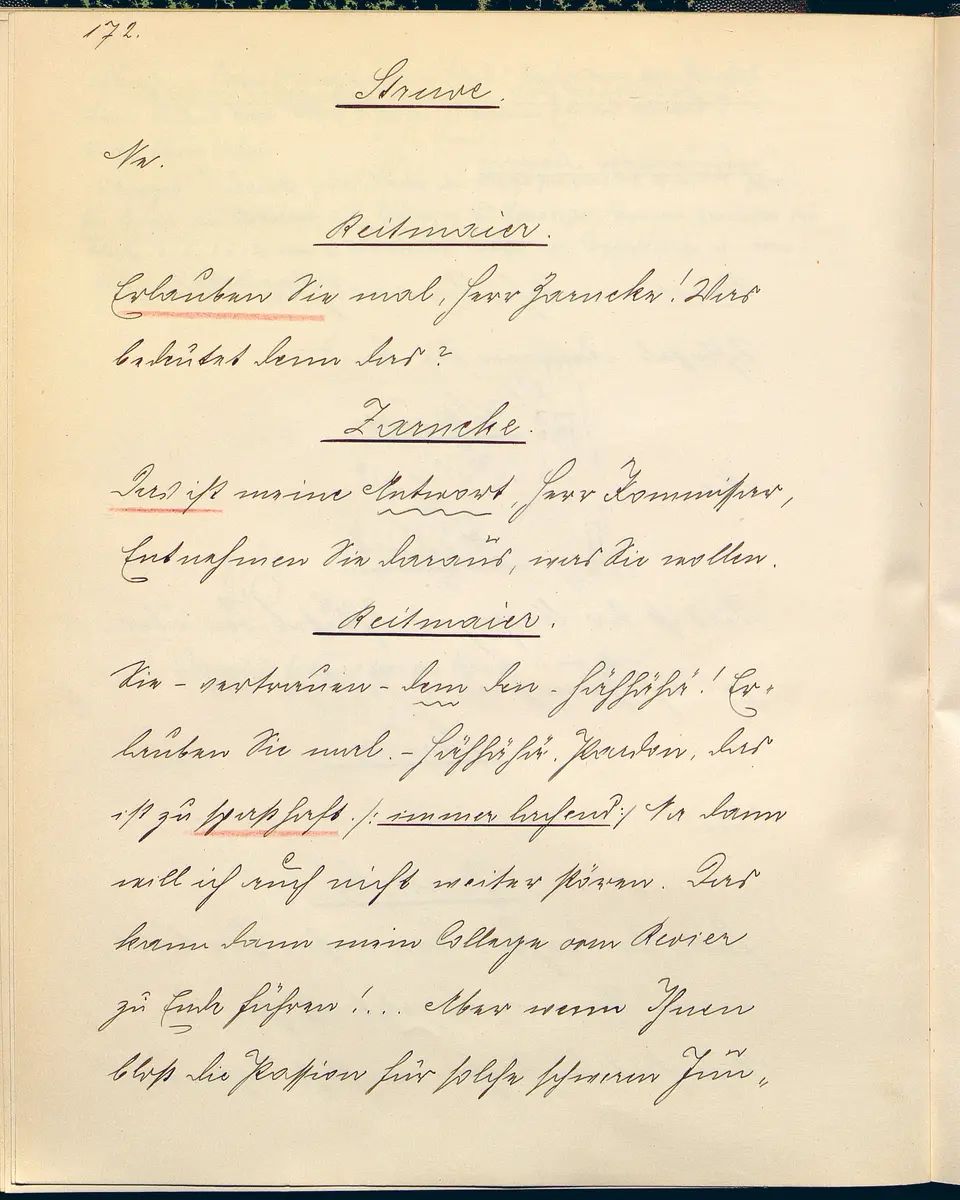 172.
Struve.
Na.
Reitmaier.
Erlauben Sie mal, Herr Zarncke! Was
bedeutet denn das?
Zarncke.
Das ist meine Antwort, Herr Kommissar,
Entnehmen Sie daraus, was Sie wollen.
Reitmaier.
Sie – vertrauen – dem den – Hähhähä! Er-
lauben Sie mal. – Hähhähä. Pardon, das
ist zu spaßhaft. /: immer lachend :/ Na dann
will ich auch nicht weiter stören. Das
kann dann mein College vom Revier
zu Ende führen!... Aber wenn Ihnen
bloß die Passion für solche schweren Jun-